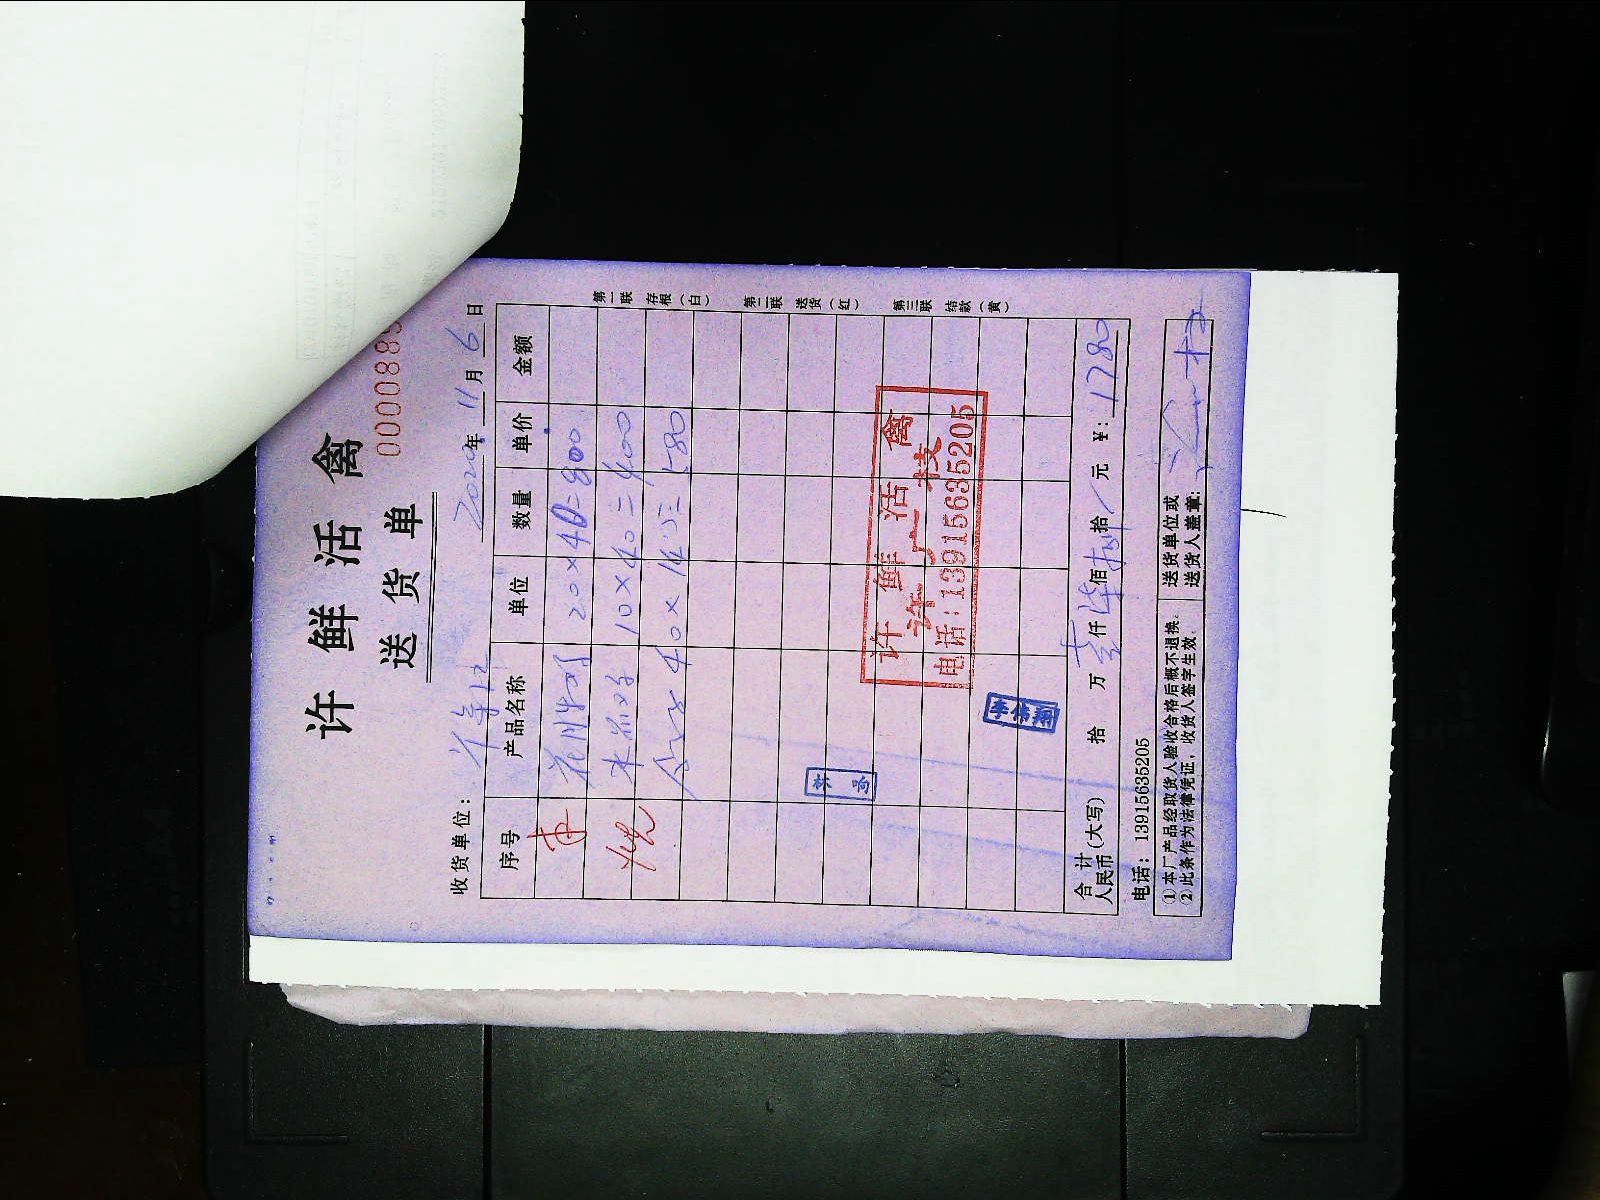 许 鲜 活 禽
送 货 单
000088
收货单位：
2020年 11月 6日
序号 产品名称 单位 数量 单价 金额
20×40=800
10×40=400
580
第一联 存根（白）
第二联 送货（红）
第三联 结款（黄）
许 鲜 活 禽
电话：13915635205
合 计
人民币(大写) 拾 万 壹仟 柒佰 捌拾 元 ¥：1780
电话：13915635205
①本厂产品经取货人验收合格后概不退换.
②此条作为法律凭证，收货人签字生效.
送货单位或
送货人盖章：